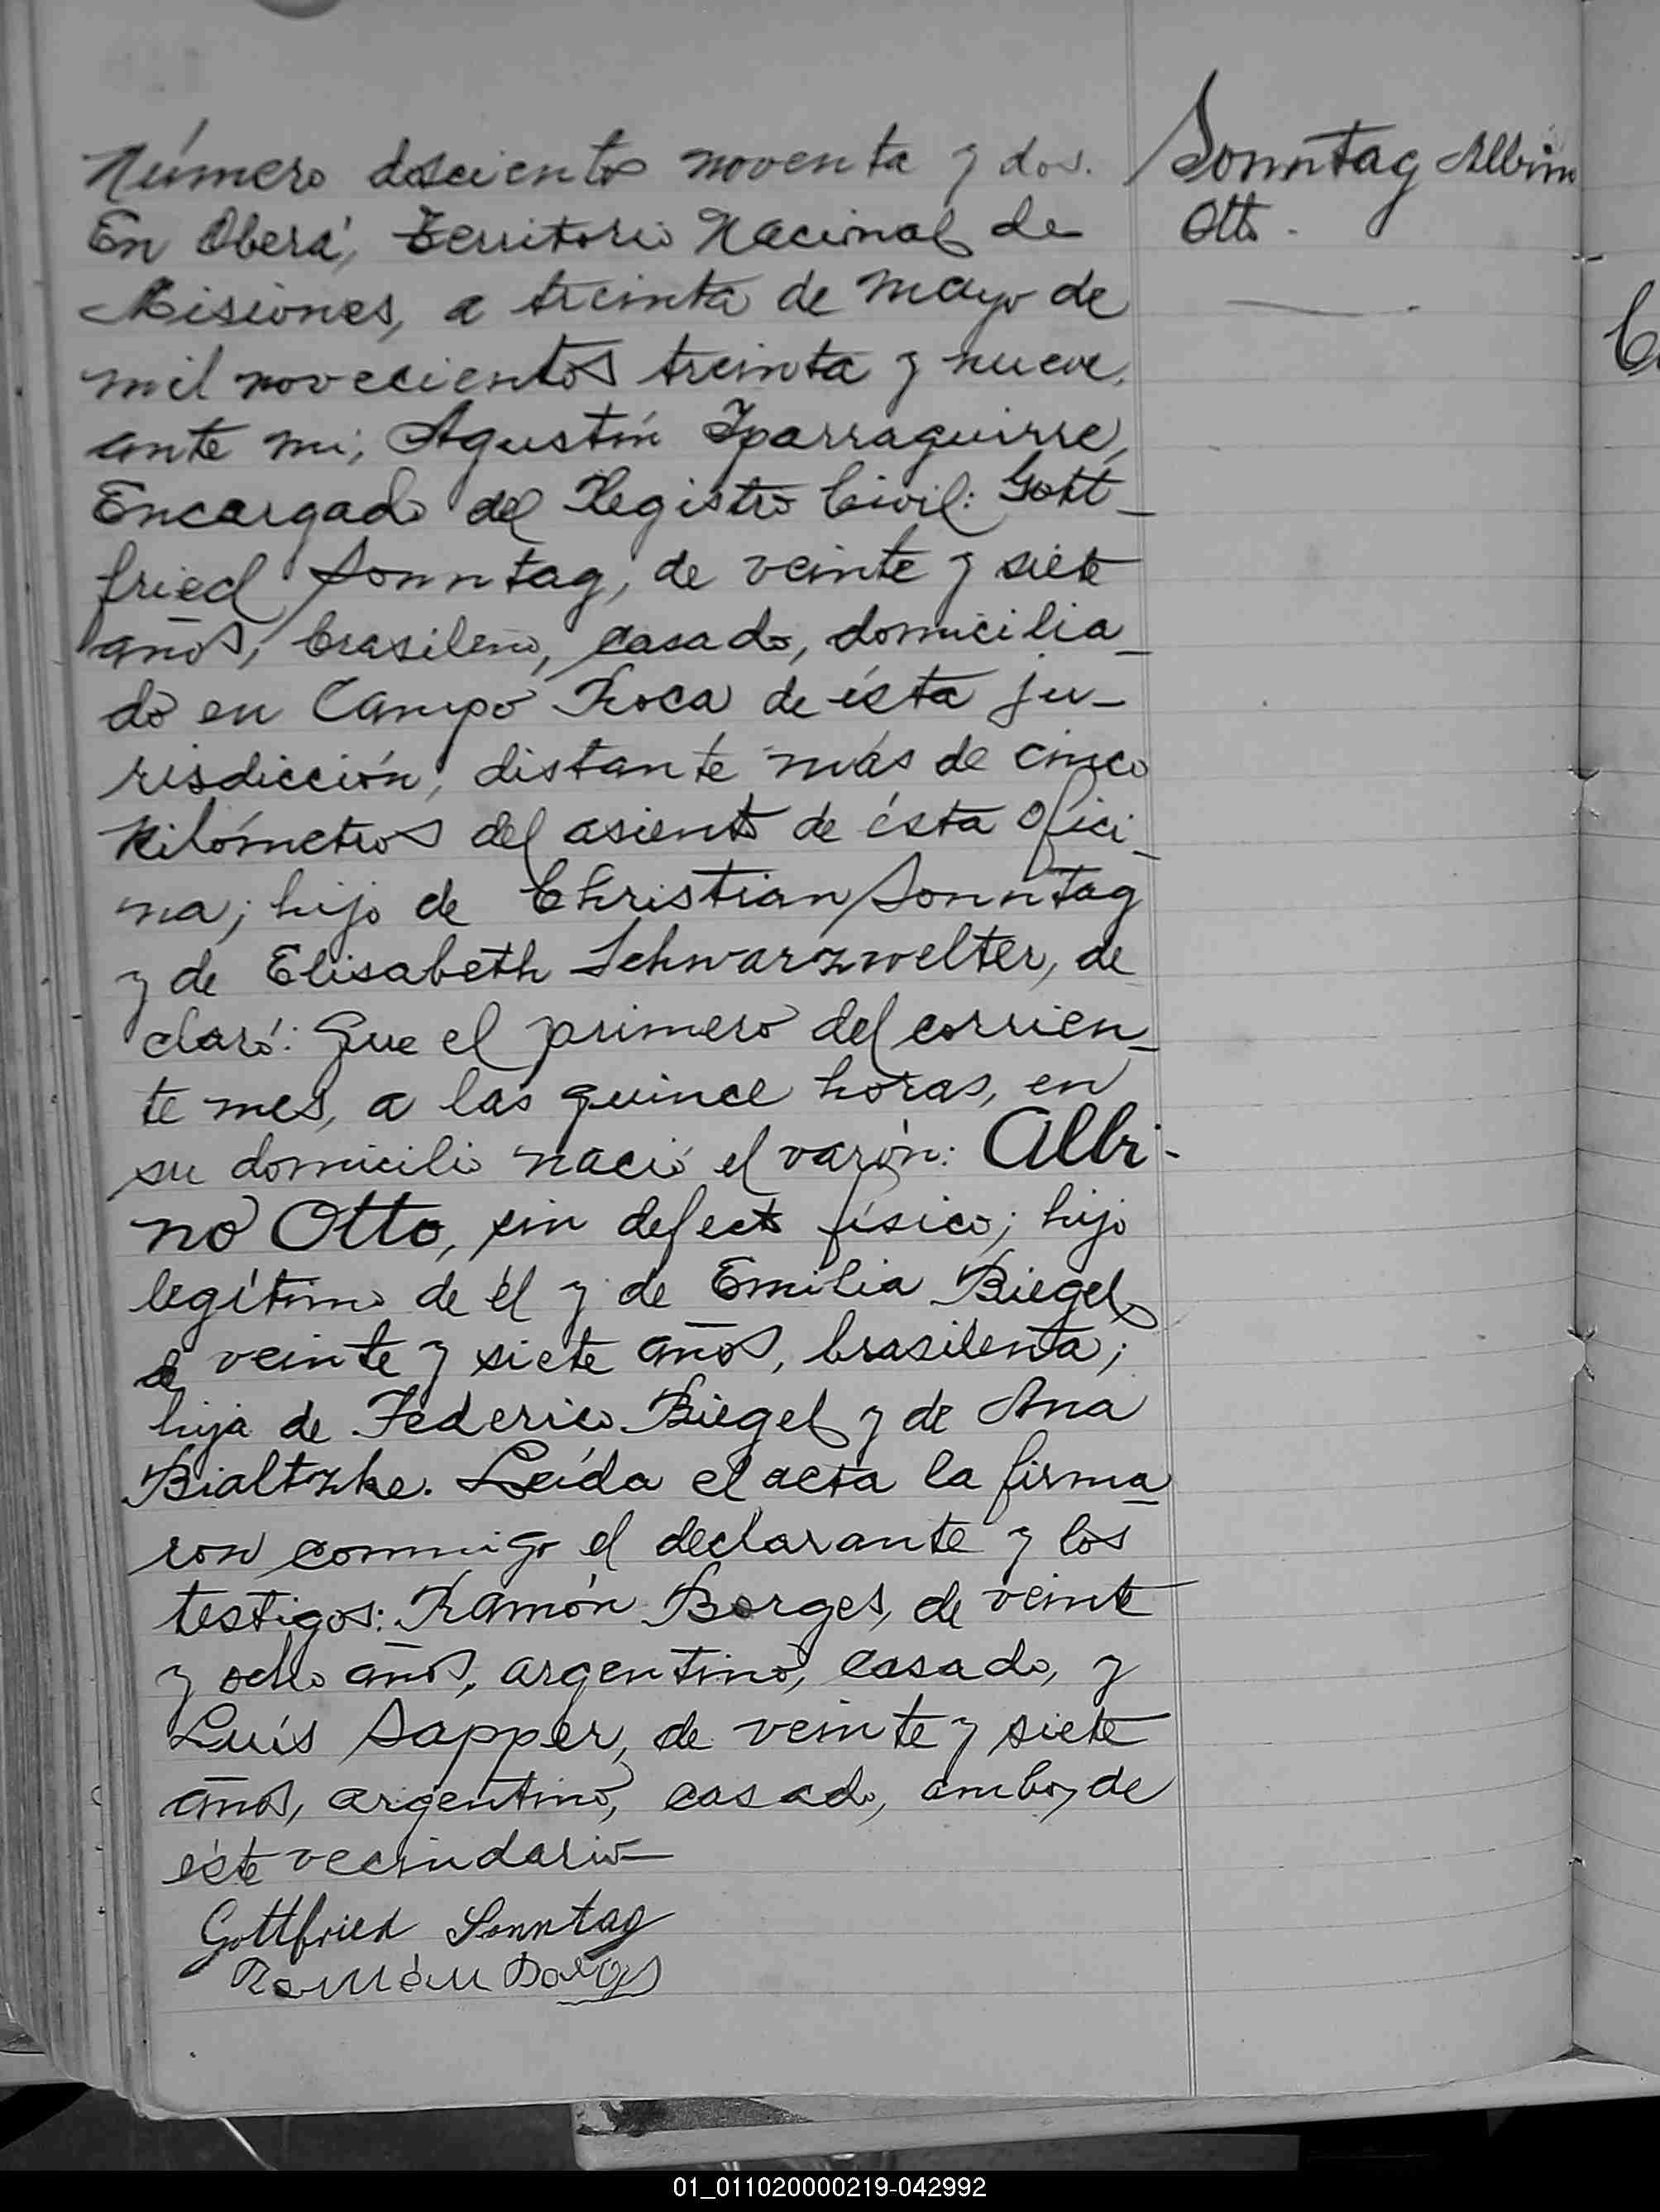 Número doscientos noventa y dos.
En Oberá, Territorio Nacional de
Misiones, a treinta de mayo de
mil novecientos treinta y nueve,
ante mi, Agustín Yparraguirre,
Encargado del Registro Civil: Gott-
fried Sonntag, de veinte y siete
años, brasileño, casado, domicilia-
do en Campo Roca de ésta ju-
risdicción, distante más de cinco
kilómetros del asiento de ésta Ofici-
na; hijo de Christian Sonntag
y de Elisabeth Schwarzwelter, de
claró: Que el primero del corrien-
te mes, a las quince horas, en
su domicilio nació el varón: Albi-
no Otto, sin defecto físico; hijo
legítimo de él y de Emilia Biegel,
de veinte y siete años, brasileña;
hija de Federico Biegel y de Ana
Bialtzke. Leída el acta la firma-
ron conmigo el declarante y los
testigos: Ramón Borges, de veinte
y ocho años, argentino, casado, y
Luís Sapper, de veinte y siete
años, argentino, casado, ambos de
éste vecindario—
Gottfried Sonntag
Ramón Borges
Sonntag Albino
Otto.
01_011020000219-042992